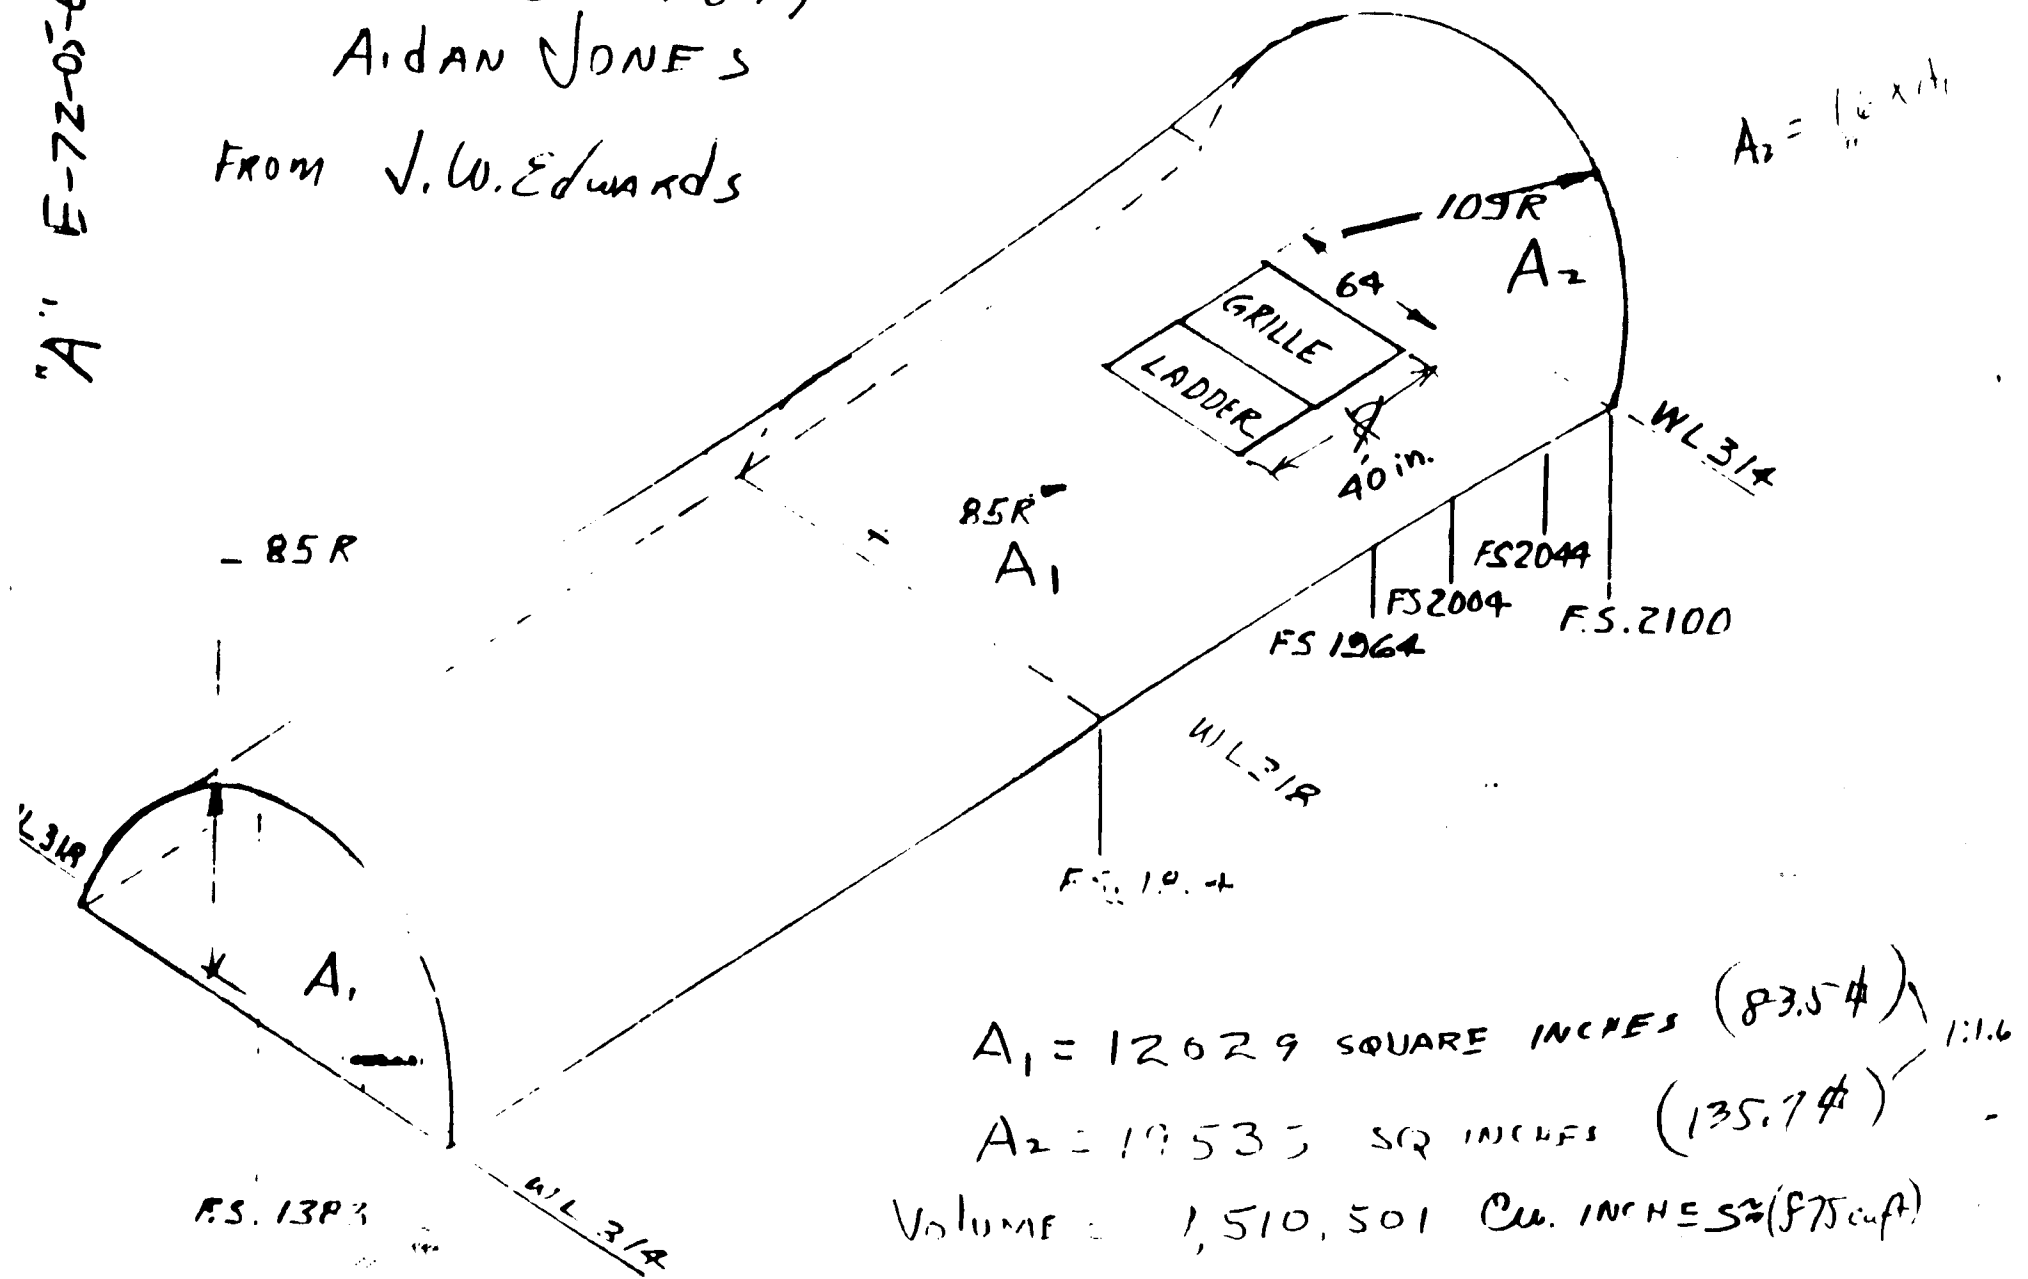 "A" E-72-05-
AidAN JONES
FROM J.W. Edwards
A2 =
109R
A2
64
GRILLE
LADDER
40 in.
WL 314
85R
A1
- 85 R
FS2044
FS2004
F.S. 2100
FS 1964
WL 318
A1
WL 314
A1 = 12029 SQUARE INCHES (83.5 ⌗)
1:1.6
A2 = SQ INCHES (135.7 ⌗)
VOLUME = 1,510,501 Cu. INCHES ≈ (875 cuft)